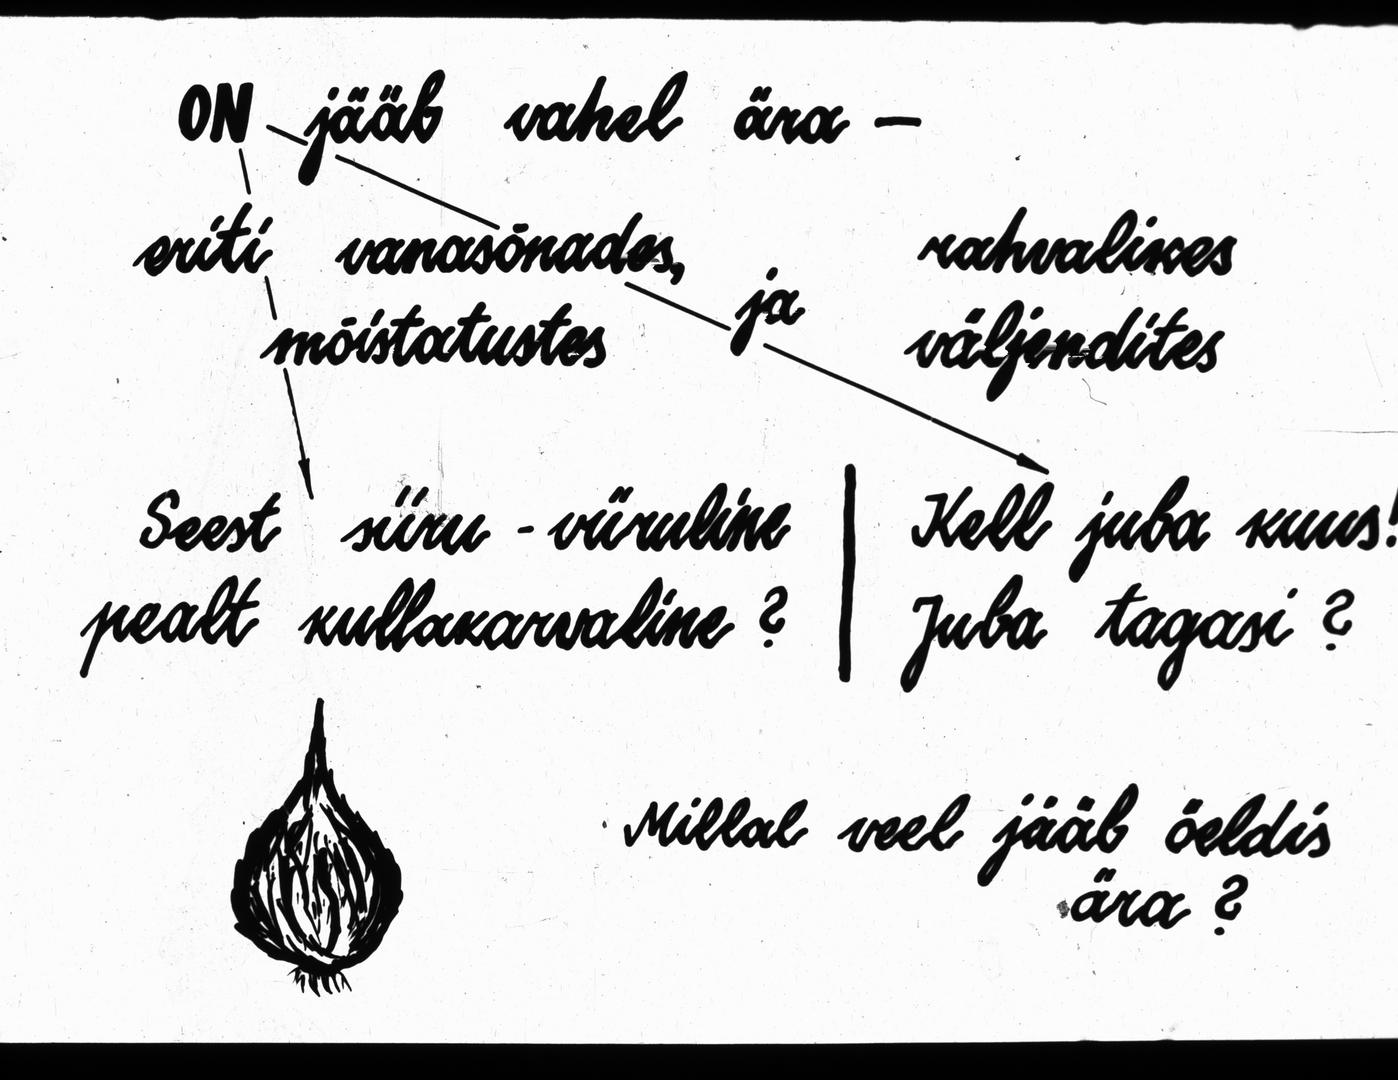 ON jääb vahel ära —
eriti vanasõnades, ja rahvalikes
mõistatustes väljendites
Seest siiru - viiruline
pealt kullakarvaline ?
Kell juba kuus!
Juba tagasi ?
Millal veel jääb öeldis
ära ?